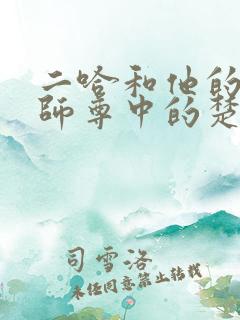 二哈和他的
師尊中的楚
司雪洛
未经同意禁止转载